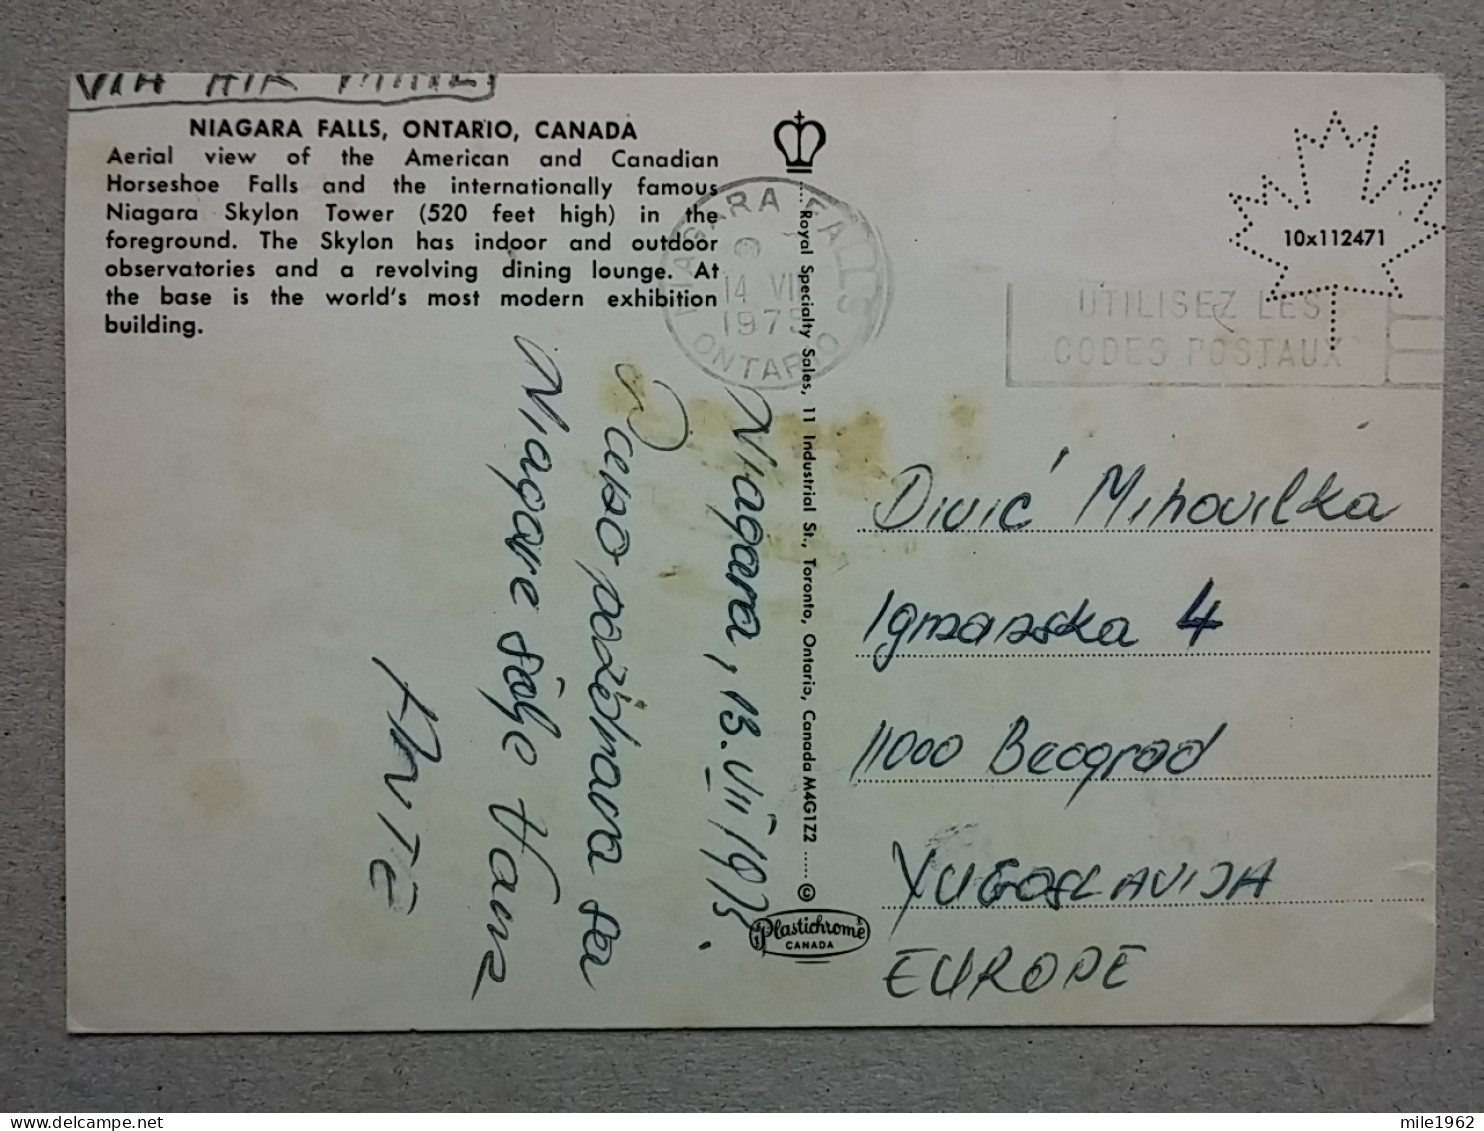 VIA AIR MAIL
NIAGARA FALLS, ONTARIO, CANADA
Aerial view of the American and Canadian
Horseshoe Falls and the internationally famous
Niagara Skylon Tower (520 feet high) in the
foreground. The Skylon has indoor and outdoor
observatories and a revolving dining lounge. At
the base is the world's most modern exhibition
building.
Niagara, 13. VII 1975.
Lepo pozdrava sa
Niagare šalje Vama
ANTE
Royal Specialty Sales, 11 Industrial St., Toronto, Ontario, Canada M4G1Z2 ©
Plastichrome
CANADA
NIAGARA FALLS
14 VII
1975
ONTARIO
UTILISEZ LES
CODES POSTAUX
10x112471
Divić Mihovilka
Igmanska 4
11000 Beograd
YUGOSLAVIJA
EUROPE
mile1962